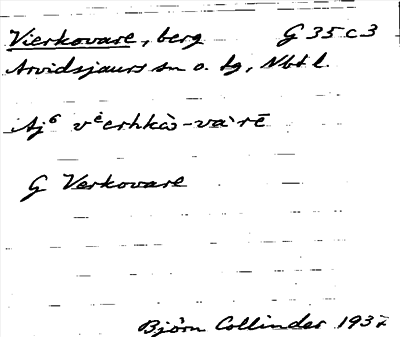 Vierkovare, berg G 35 c 3
Arvidsjaurs sn o. tg, Nbtl.
Aj⁶ vėerhkȧ̀-va`rē
G Verkovare
Björn Collinder 193